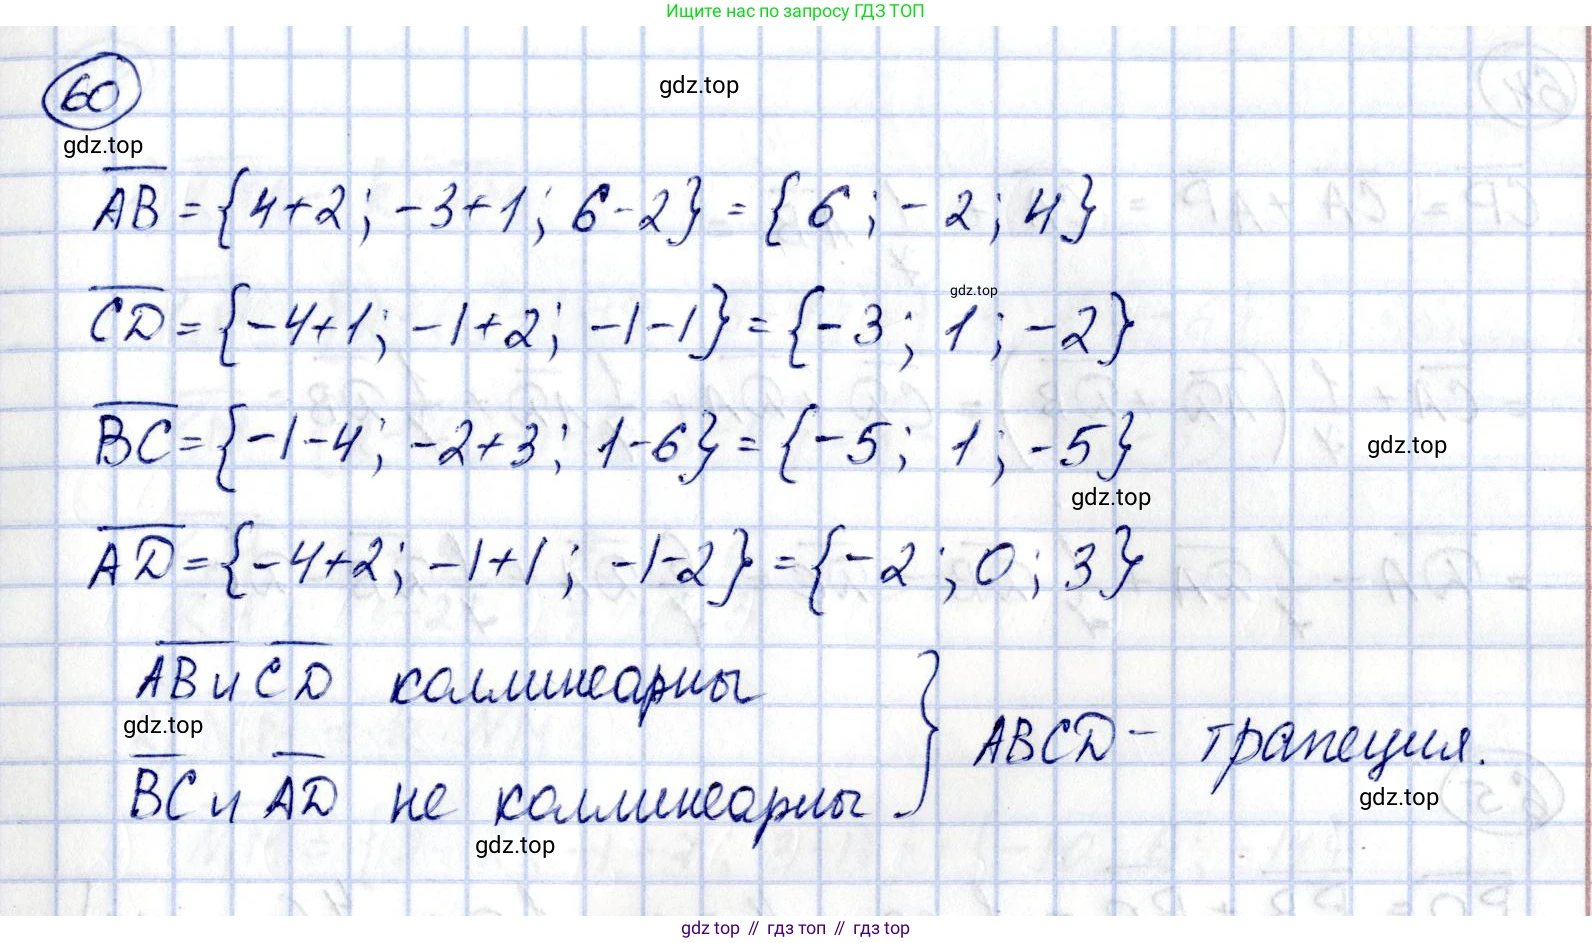 Ищите нас по запросу ГДЗ ТОП
60
gdz.top
gdz.top
AB = {4+2; -3+1; 6-2} = {6; -2; 4}
gdz.top
CD = {-4+1; -1+2; -1-1} = {-3; 1; -2}
BC = {-1-4; -2+3; 1-6} = {-5; 1; -5}
gdz.top
gdz.top
AD = {-4+2; -1+1; -1-2} = {-2; 0; 3}
AB и CD коллинеарны
gdz.top
ABCD - трапеция.
BC и AD не коллинеарны
gdz.top
gdz.top
gdz.top // гдз топ // гдз top